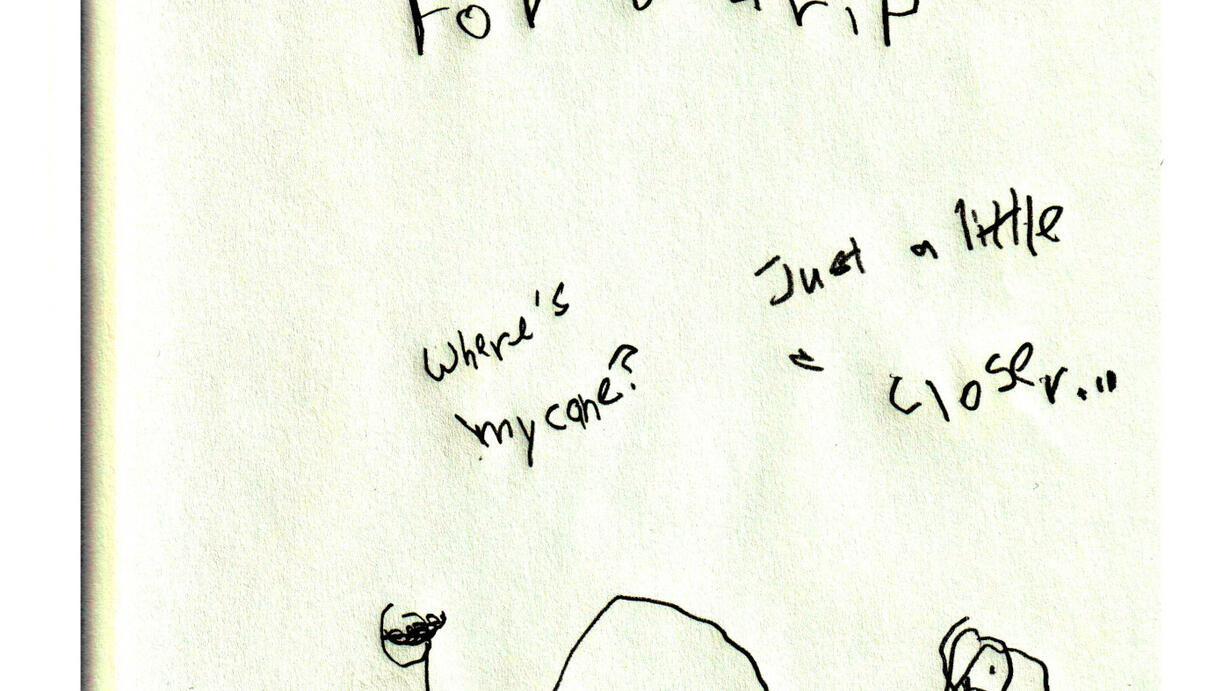 For a trip
Where's
my cane?
Just a little
closer...